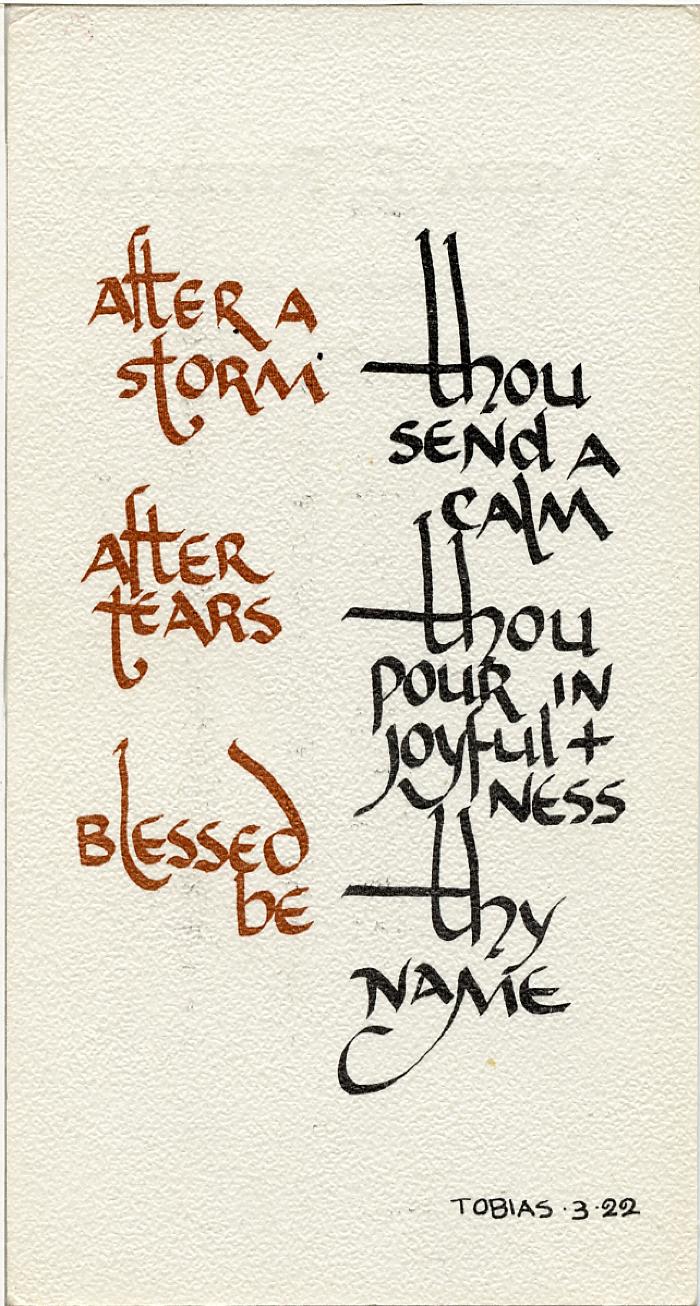 after a
storm
thou
send a
calm
after
tears
thou
pour in
joyful +
ness
Blessed
be
thy
name
TOBIAS · 3 · 22